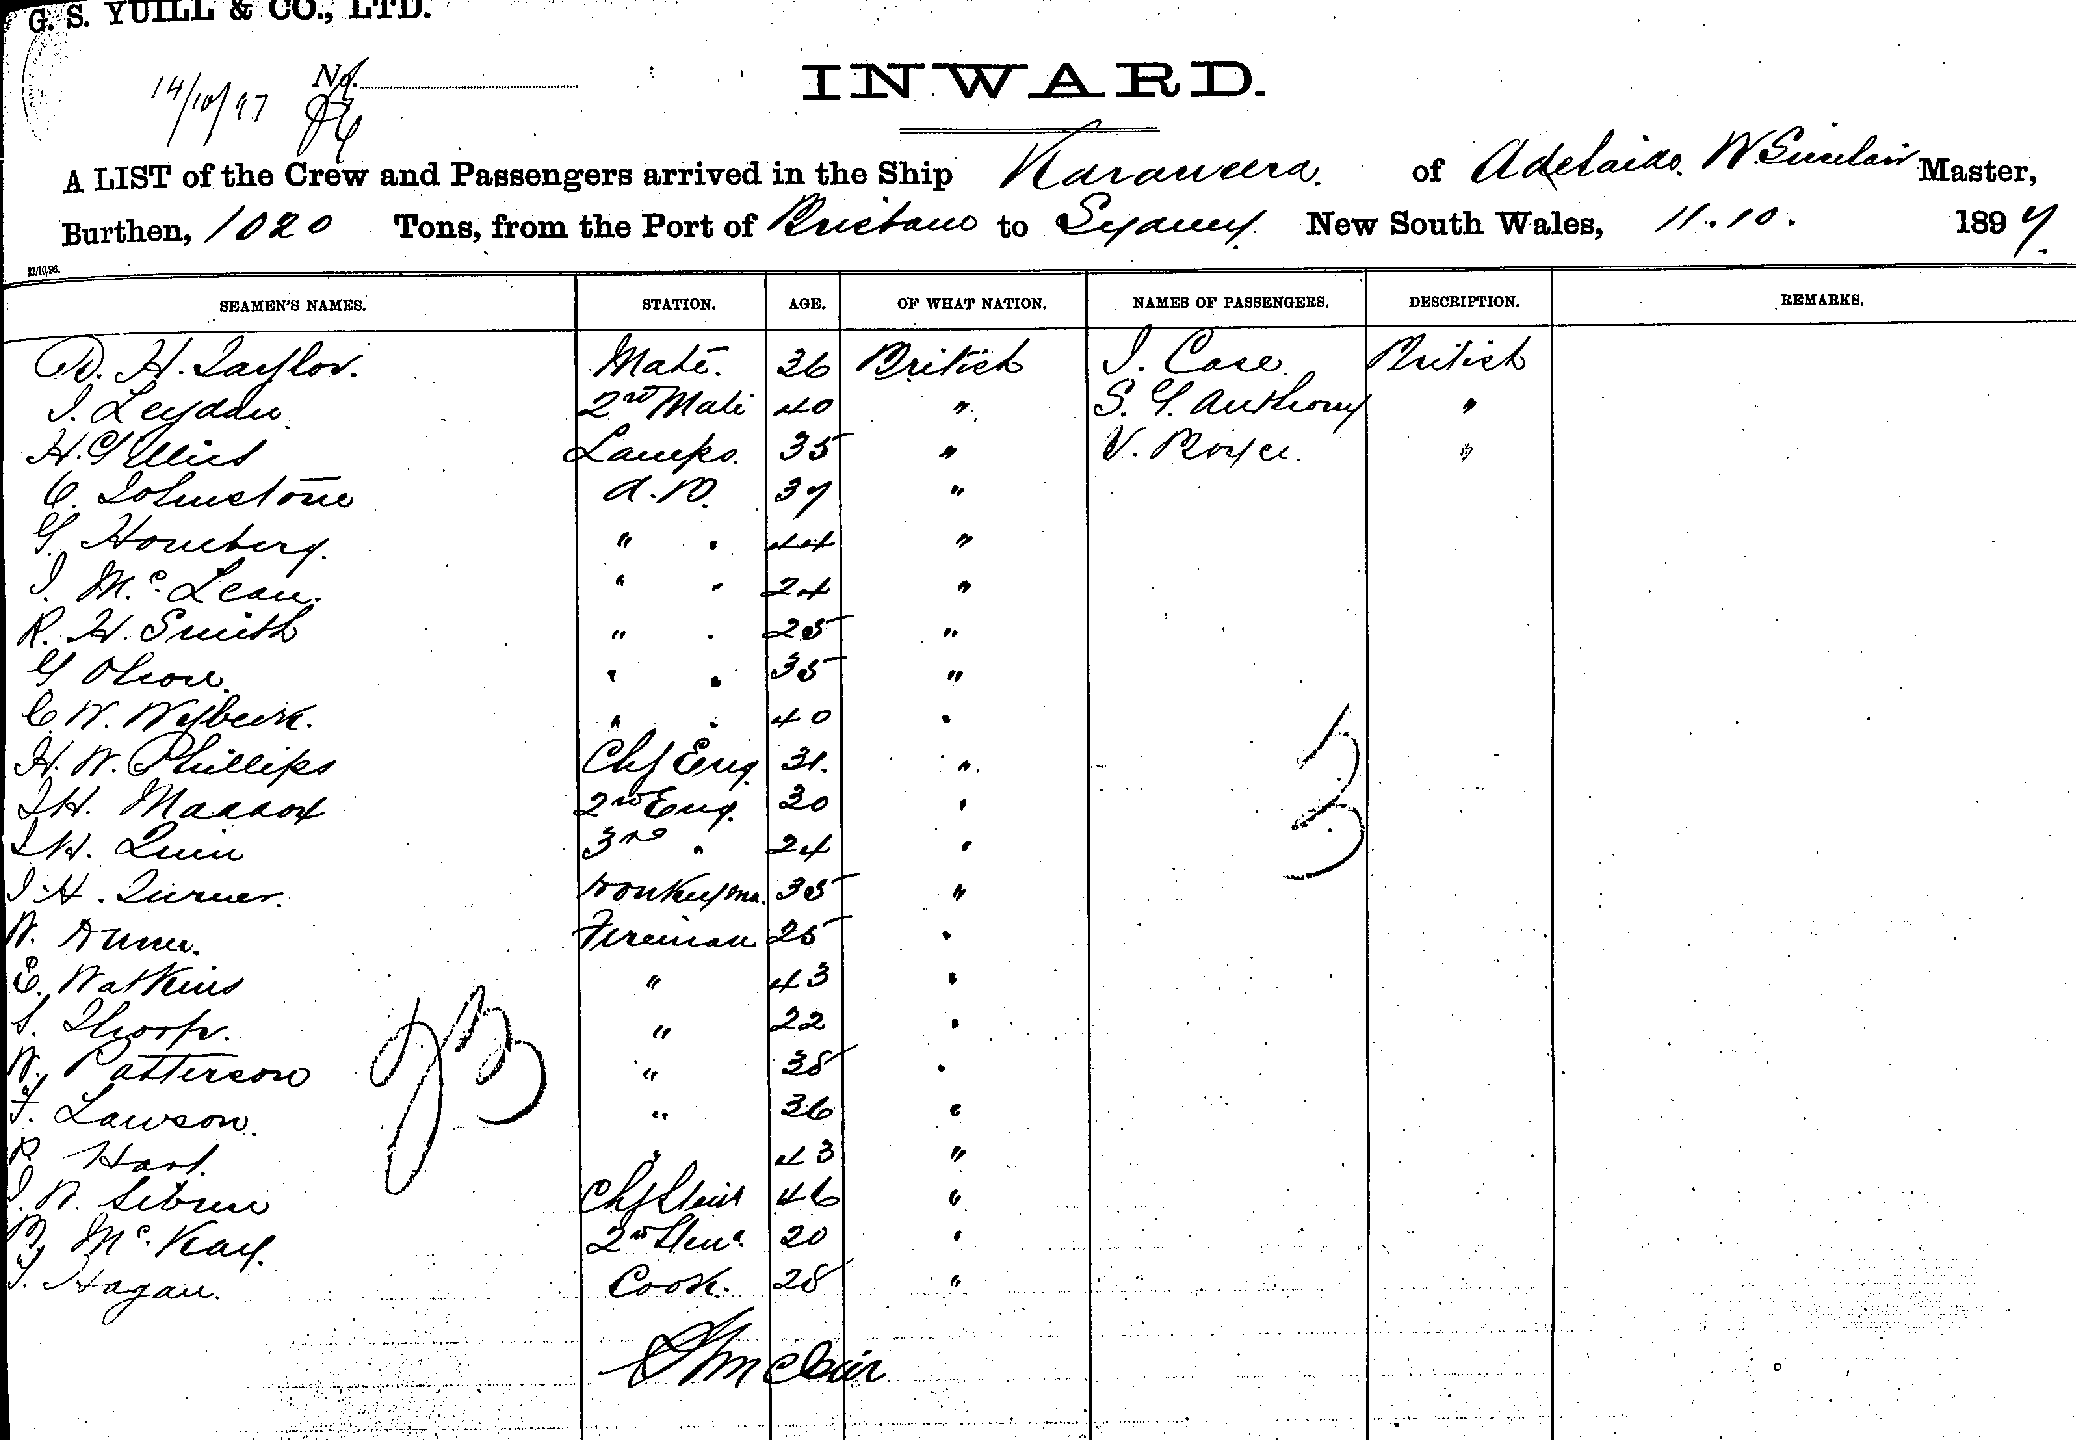 G. S. YUILL & CO., LTD.
14/10/97 No.
INWARD.
A LIST of the Crew and Passengers arrived in the Ship Karaweera. of Adelaide. W Sinclair Master,
Burthen, 1020 Tons, from the Port of Brisbane to Sydney. New South Wales, 11.10. 1897.
SEAMEN'S NAMES. STATION. AGE. OF WHAT NATION. NAMES OF PASSENGERS. DESCRIPTION. REMARKS.
D. H. Taylor. Mate. 36 British J. Case. British
J. Leydan. 2nd Mate 40 " S. G. Anthony "
H. Gillies Lamps. 35 " V. "
C. Johnstone A.B. 37 "
G. Honeberg. " " 44 "
J. McLean. " " 24 "
R. H. Smith " " 25 "
G Olsson. " " 35 "
C W. " " 40 "
H. W. Phillips Chf Eng. 31. "
J H. Maddox 2nd Eng. 30 "
J H. Quin 3rd " 24 "
J H. Turner. Donkeyman. 35 "
W. Dunn. Fireman 25 "
E. Watkins " 43 "
S. Thorp. " 22 "
W. Patterson " 38 "
F. Lawson. " 36 "
R Hart. " 43 "
J. W. Chf Stew 46 "
B. McKay. 2nd Stew. 20 "
J. Hagan. Cook. 28 "
23
3
Sinclair